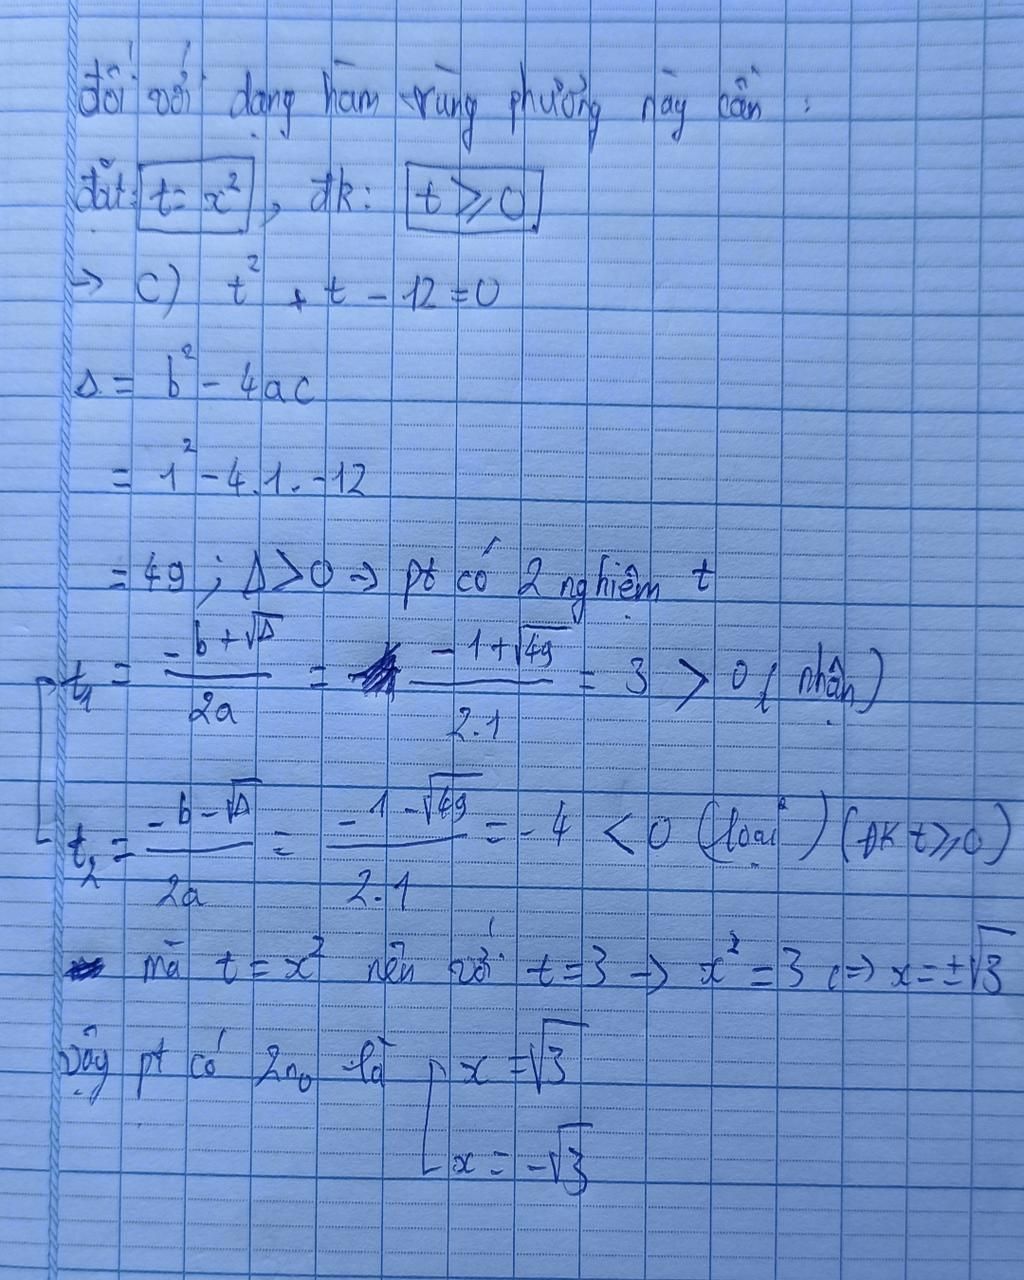 đối với dạng hàm trùng phương này cần :
đặt: t = x², đk: t ⩾ 0
→ c) t² + t - 12 = 0
Δ = b² - 4ac
= 1² - 4.1.-12
= 49 ; Δ > 0 → pt có 2 nghiệm t
t₁ = (-b + √Δ)/2a = (-1 + √49)/2.1 = 3 > 0 (nhận)
t₂ = (-b - √Δ)/2a = (-1 - √49)/2.1 = -4 < 0 (loại) (ĐK t ⩾ 0)
mà t = x² nên với t = 3 → x² = 3 <=> x = ±√3
Vậy pt có 2n₀ là [ x = √3
x = -√3